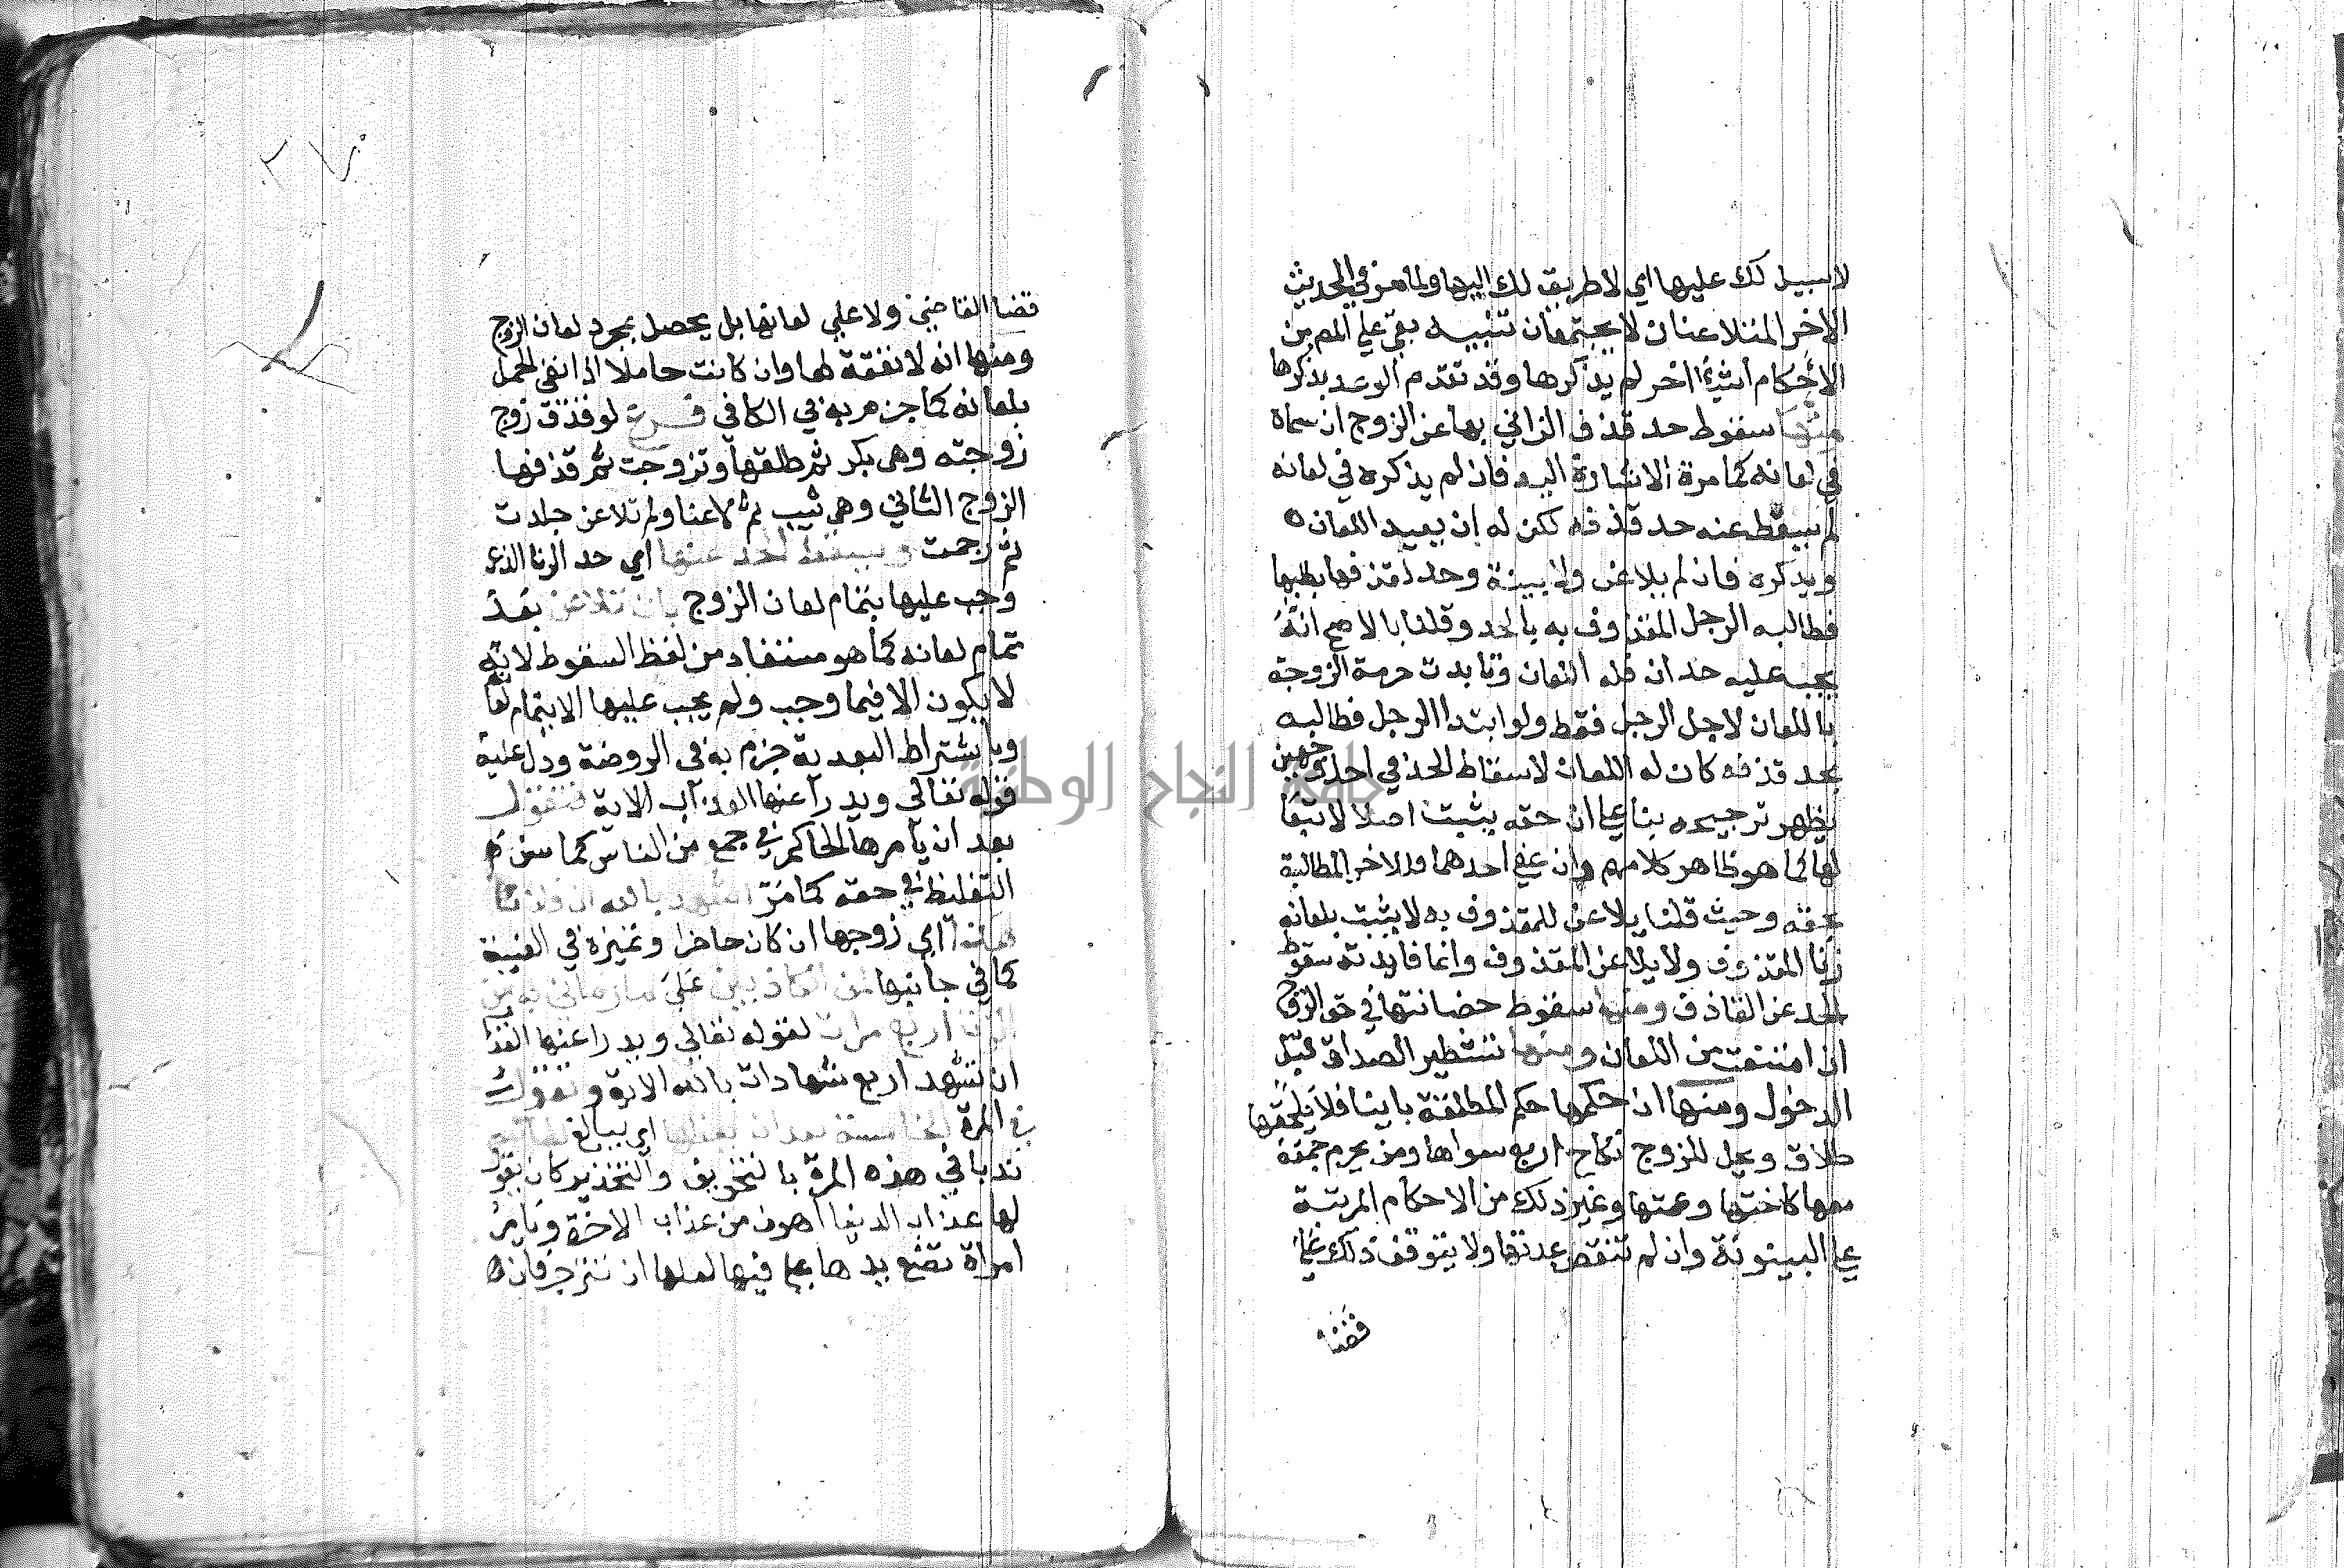 لاسبيل لك عليها اي لا طريق لك اليها ولما مر في الحديث
الاخر المتلاعنان لا يجتمعان تنبيه بقي علي المص من
الاحكام اشيئا اخر لم يذكرها وقد تقدم الوعد بذكرها
منها سقوط حد قذف الزاني بها عن الزوج ان سماه
في لعانه كما مرة الاشارة اليه فان لم يذكره في لعانه
لم يسقط عنه حد قذفه لكن له ان يعيد اللعان
ويذكره فان لم يلاعن ولا بينة وحد لقذفها بطلبها
فطالبه الرجل المقذوف به بالحد وقلنا بالاصح انه
يجب عليه حدان فله اللعان وتابدت حرمة الزوجة
باللعان لاجل الرجل فقط ولو ابتدا الرجل فطالبه
بحد قذفه كان له اللعان لاسقاط الحد في احد وجهين
يظهر ترجيحه بنا علي ان حقه يثبت اصلا لا تبعا
لها كما هو ظاهر كلامهم وان عفي احدهما فللاخر المطالبة
بحقه وحيث قلنا يلاعن للمقذوف به لا يثبت بلعانه
زنا المقذوف ولا يلاعن المقذوف وانما فايدته سقوط
الحد عن القاذف ومنها سقوط حضانتها في حق الزوج
ان امتنعت من اللعان ومنها تشطير الصداق قبل
الدخول ومنها ان حكمها حكم المطلقة باينا فلا يلحقها
طلاق ويحل للزوج نكاح اربع سواها ومن يحرم جمعه
معها كاختها وعمتها وغير ذلك من الاحكام المرتبة
علي البينونة وان لم تنقض عدتها ولا يتوقف ذلك علي
قضا
قضا القاضي ولا علي لعانها بل يحصل بمجرد لعان الزوج
ومنها انه لا نفقة لها وان كانت حاملا اذا نفي الحمل
بلعانه كما جزم به في الكافي فرع لو قذف زوج
زوجته وهي بكر ثم طلقها وتزوجت ثم قذفها
الزوج الثاني وهي ثيب ثم لاعنا ولم تلاعن جلدت
ثم رجمت ويسقط الحد عنها اي حد الزنا الذي
وجب عليها بتمام لعان الزوج بان تلاعن بعد
تمام لعانه كما هو مستفاد من لفظ السقوط لانه
لا يكون الا فيما وجب ولم يجب عليها الا بتمام لعا
وباشتراط البعدية جزم به في الروضة ودل عليه
قوله تعالي ويدرا عنها العذاب الاية فتقول
بعد ان يامرها الحاكم في جمع من الناس كما سن
التغليظ في حقه كما مر اشهد بالله ان فلانا
هذا اي زوجها ان كان حاضرا وتميزه في الغيبة
كما في جانبها لمن الكاذبين علي فيما رماني به من
الزنا اربع مرات لقوله تعالي ويدرا عنها العذا
ان تشهد اربع شهادات بالله الاية وتقول
في المرة الخامسة بعد ان يعظها اي يبالغ
ندبا في هذه المرة بالتخويف والتحذير كان يقول
لها عذاب الدنيا اهون من عذاب الاخرة ويامر
امراة تضع يدها علي فيها لعلها ان تنزجر فان
جامعة النجاح الوطنية